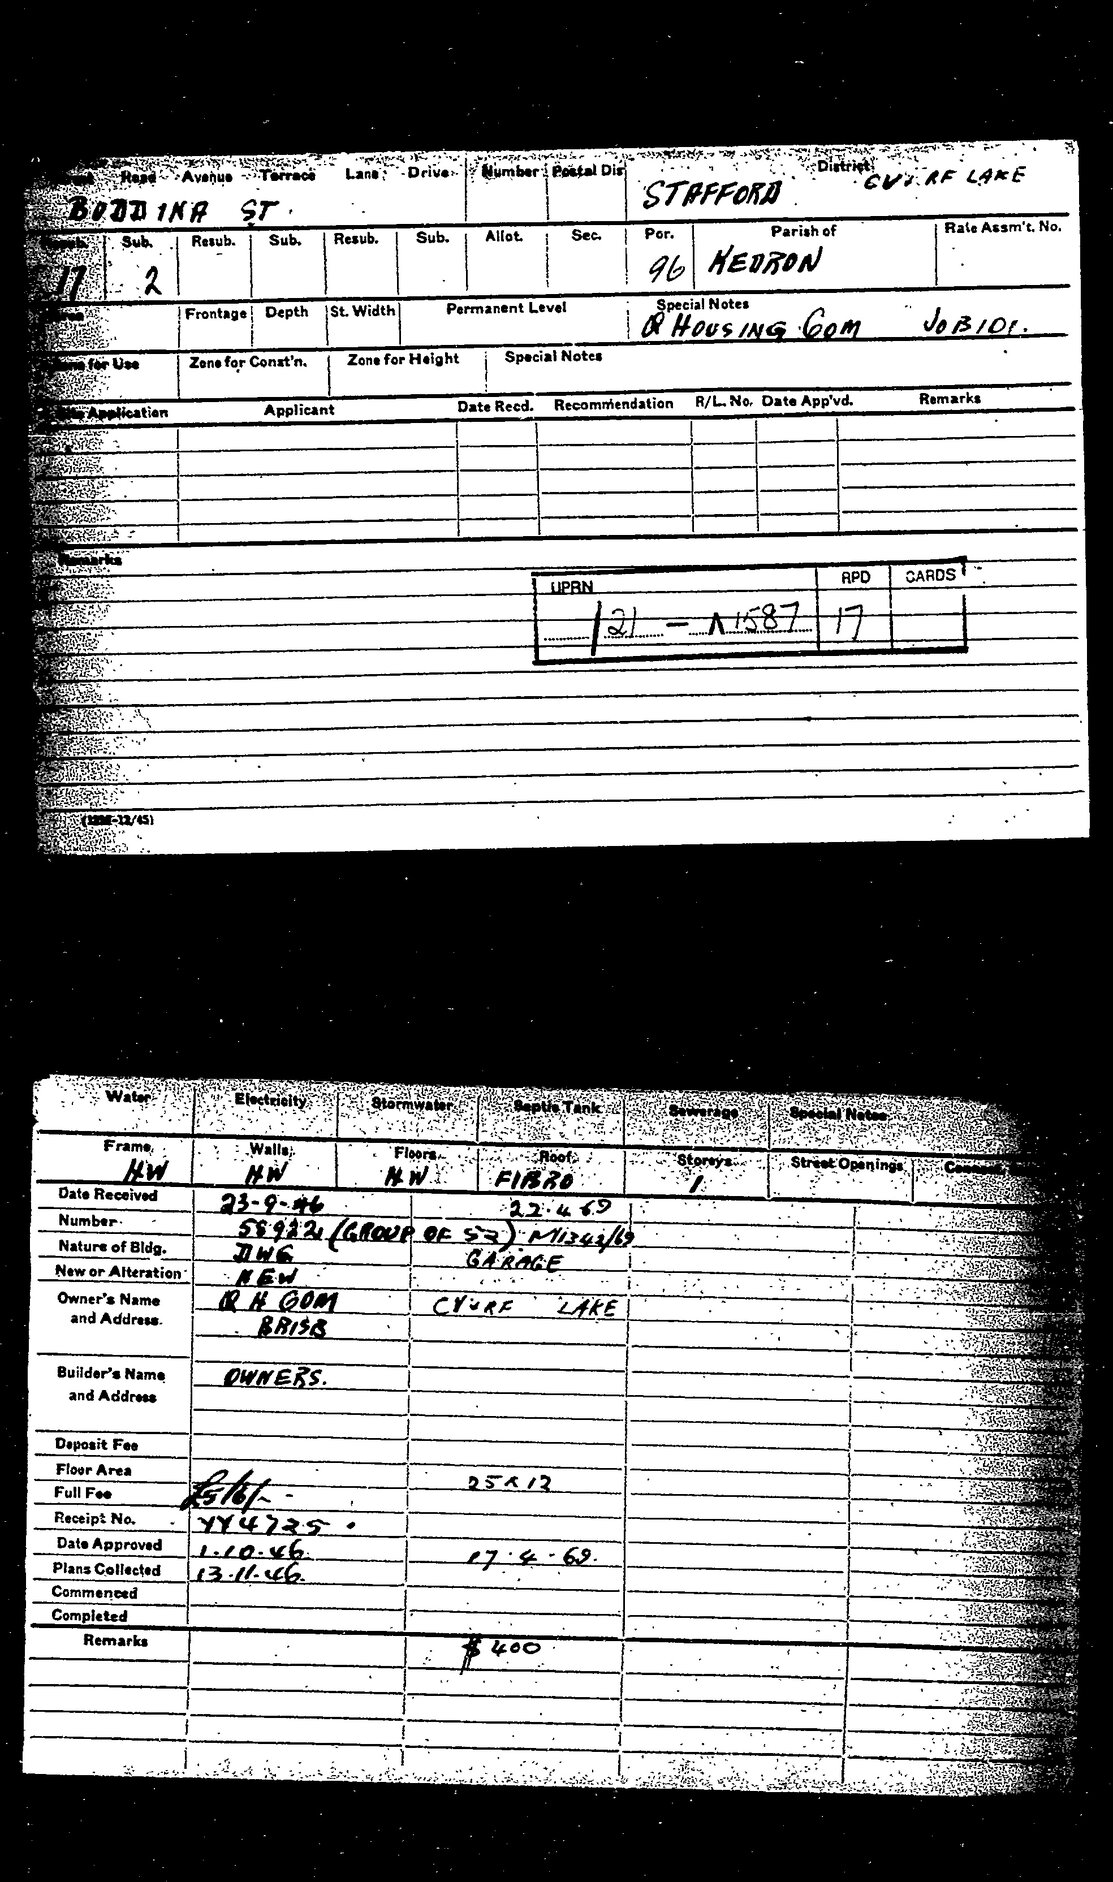 Road Avenue Terrace Lane Drive Number Postal Dis District
BODDINA ST. STAFFORD LAKE
Sub. Resub. Sub. Resub. Sub. Allot. Sec. Por. Parish of Rate Assm't. No.
17 2 96 KEDRON
Frontage Depth St. Width Permanent Level Special Notes
Q HOUSING COM JOB 101.
for Use Zone for Const'n. Zone for Height Special Notes
Application Applicant Date Recd. Recommendation R/L. No. Date App'vd. Remarks
Remarks
UPRN RPD CARDS
/21 - 1587 17
Water Electricity Stormwater Septic Tank Sewerage Special Notes
Frame Walls Floors Roof Storeys Street Openings
HW HW HW FIBRO 1
Date Received 23-9-46 22.4.69
Number (GROUP OF 52) M1343/69
Nature of Bldg. DWG GARAGE
New or Alteration NEW
Owner's Name Q H COM LAKE
and Address. BRISB
Builder's Name OWNERS.
and Address
Deposit Fee
Floor Area 25 x 12
Full Fee £5/6/-
Receipt No. YY4725
Date Approved 1.10.46. 17.4.69.
Plans Collected 13.11.46.
Commenced
Completed
Remarks $400